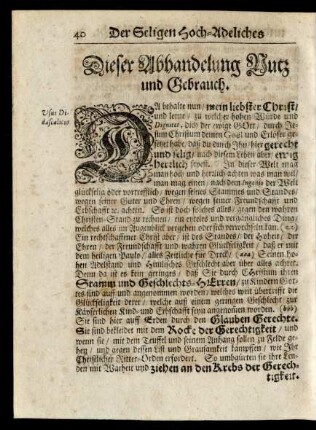 40 Der Seligen Hoch-Adeliches
Dieser Abhandelung Nutz
und Gebrauch.
Usus Di-
dascalicus
DA behalte nun / mein liebster Christ /
und lerne / zu welcher hohen Würde und
Dignität, dich der ewige GOtt / durch Je-
sum Christum deinen Goel und Erlöser ge-
setzet habe, daß du durch Ihn / hier gerecht
und selig / nach diesem Leben aber / ewig
herrlich seyest. In dieser Welt mag
man hoch und herrlich achten was man wil /
man mag einen / nach dem der Welt
glückselig oder vortrefflich / wegen seines Stammes und Standes /
wegen seiner Güter und Ehren / wegen seiner Freundschafft und
Erbschafft æ. achten. So ist doch solches alles / gegen den wahren
Christen-Stand zu rechnen / ein eiteles und vergängliches Ding /
welches alles im Augenblick vergehen oder sich verwechseln kan.
Ein rechtschaffener Christ aber / ist des Standes / der Hoheit / der
Ehren / der Freundschafft und wahren Glückseligkeit / daß er mit
dem heiligen Paulo / alles Zeitliche für Dreck / Seinen ho-
hen Adelstand und Himlisches Geschlecht aber über alles achtet.
Denn da ist es kein geringes / daß Sie durch Christum ihren
Stamm und Geschlechts-HErren / zu Kindern Got-
tes sind auf und angenommen worden / welches weit übertrifft die
Glückseligkeit deter / welche auf einem geringen Geschlecht zur
Käyserlichen Kind- und Erbschafft seyn angenommen worden.
Sie sind hier auff Erden durch den Glauben Gerechte.
Sie sind bekleidet mit dem Rocke der Gerechtigkeit / und
wenn sie / mit dem Teuffel und seinem Anhang sollen zu Felde ge-
hen / und gegen dessen List und Grausamkeit kämpffen / wie Ihr
Christlicher Ritter-Orden erfordert. So umbgürten sie ihre Len-
den mit Warheit und ziehen an den Krebs der Gerech-
tigkeit.